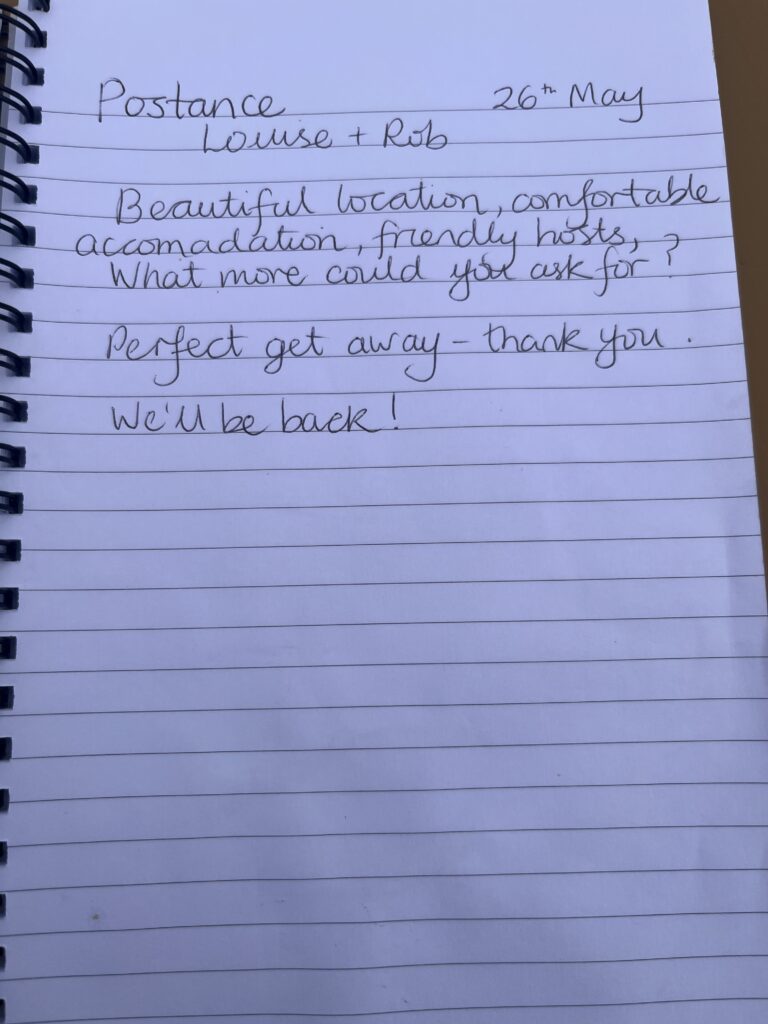 Postance 26th May
Louise + Rob
Beautiful location, comfortable
accomadation, friendly hosts,
What more could you ask for?
Perfect get away – thank you.
We'll be back!